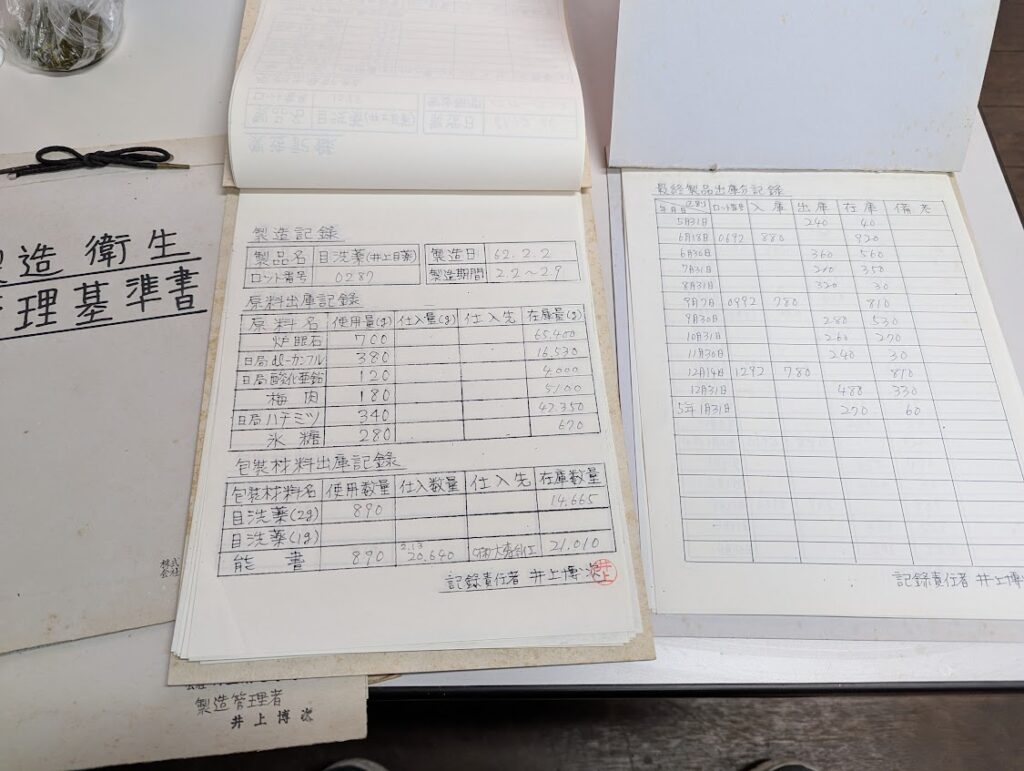 造衛生
理基準書
株式
会社
製造管理者
井上博次
製造記録
製品名 目洗薬(井上目薬) 製造日 62.2.2
ロット番号 0287 製造期間 2.2~2.9
原料出庫記録
原料名 使用量(g) 仕入量(g) 仕入先 在庫量(g)
炉眼石 700 65,400
日局dl-カンフル 380 16,530
日局酸化亜鉛 120 4,000
梅肉 180 5,100
日局ハチミツ 340 42,350
氷糖 280 670
包装材料出庫記録
包装材料名 使用数量 仕入数量 仕入先 在庫数量
目洗薬(2g) 890 14,665
目洗薬(1g)
能書 890 2.13 20,640 21,010
記録責任者 井上博次 井上
最終製品出庫方記録
年月日 ロット番号 入庫 出庫 在庫 備考
5月31日 240 40
6月18日 0692 880 920
6月30日 360 560
7月31日 210 350
8月31日 320 30
9月7日 0992 780 810
9月30日 280 530
10月31日 260 270
11月30日 240 30
12月14日 1292 780 810
12月31日 480 330
5年1月31日 270 60
記録責任者 井上博